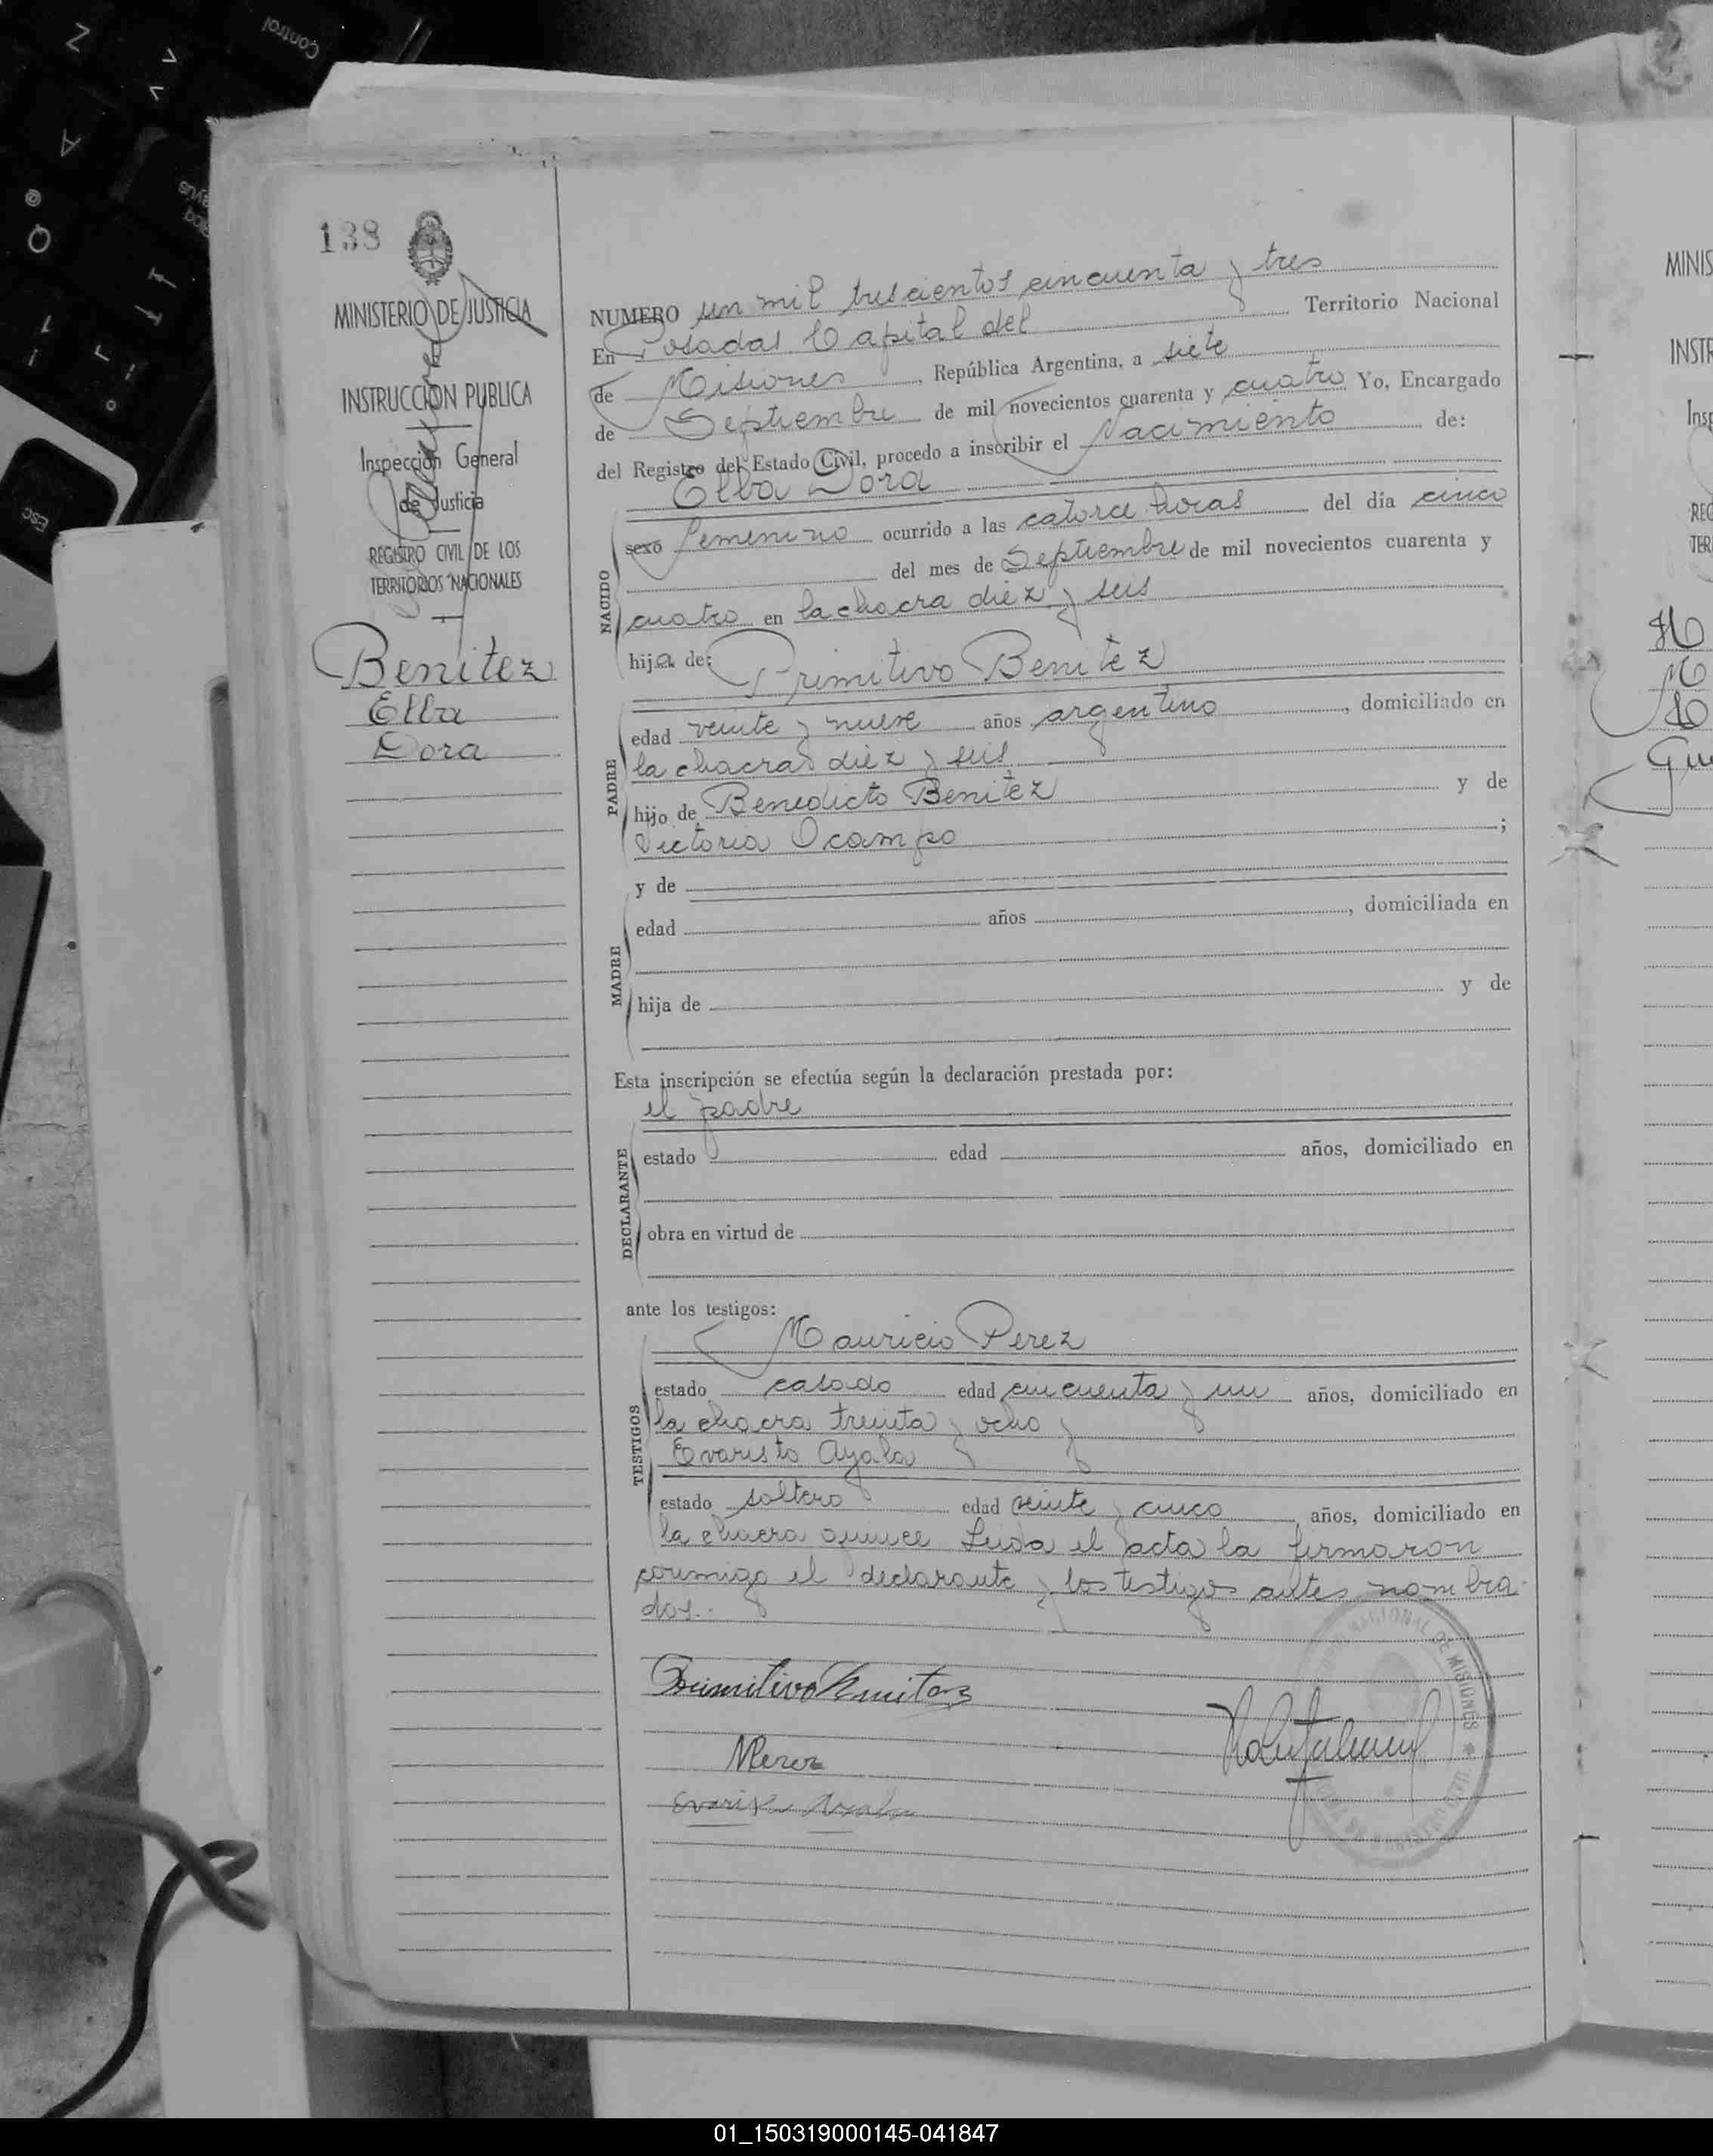 138
MINISTERIO DE JUSTICIA
INSTRUCCION PUBLICA
Inspección General
de Justicia
REGISTRO CIVIL DE LOS
TERRITORIOS NACIONALES
Benitez
Elba
Dora
NUMERO un mil trescientos cincuenta y tres
En Posadas Capital del Territorio Nacional
de Misiones, República Argentina, a siete
de Septiembre de mil novecientos cuarenta y cuatro Yo, Encargado
del Registro del Estado Civil, procedo a inscribir el Nacimiento de:
Elba Dora
NACIDO
sexo femenino ocurrido a las catorce horas del día cinco
del mes de Septiembre de mil novecientos cuarenta y
cuatro en la chacra diez y seis
hija de: Primitivo Benitez
PADRE
edad veinte y nueve años argentino, domiciliado en
la chacra diez y seis
hijo de Benedicto Benitez y de
Victoria Ocampo ;
y de
MADRE
edad años , domiciliada en
hija de y de
Esta inscripción se efectúa según la declaración prestada por:
el padre
DECLARANTE
estado edad años, domiciliado en
obra en virtud de
ante los testigos:
Mauricio Perez
TESTIGOS
estado casado edad cincuenta y un años, domiciliado en
la chacra treinta y ocho y
Evaristo Ayala
estado soltero edad veinte y cinco años, domiciliado en
la chacra quince Leida el acta la firmaron
conmigo el declarante y los testigos antes nombra-
dos.-
Primitivo Benitez
MPerez
Evaristo Ayala
NACIONAL DE MISIONES
MINIS
INSTR
Insp
REG
TER
01_150319000145-041847